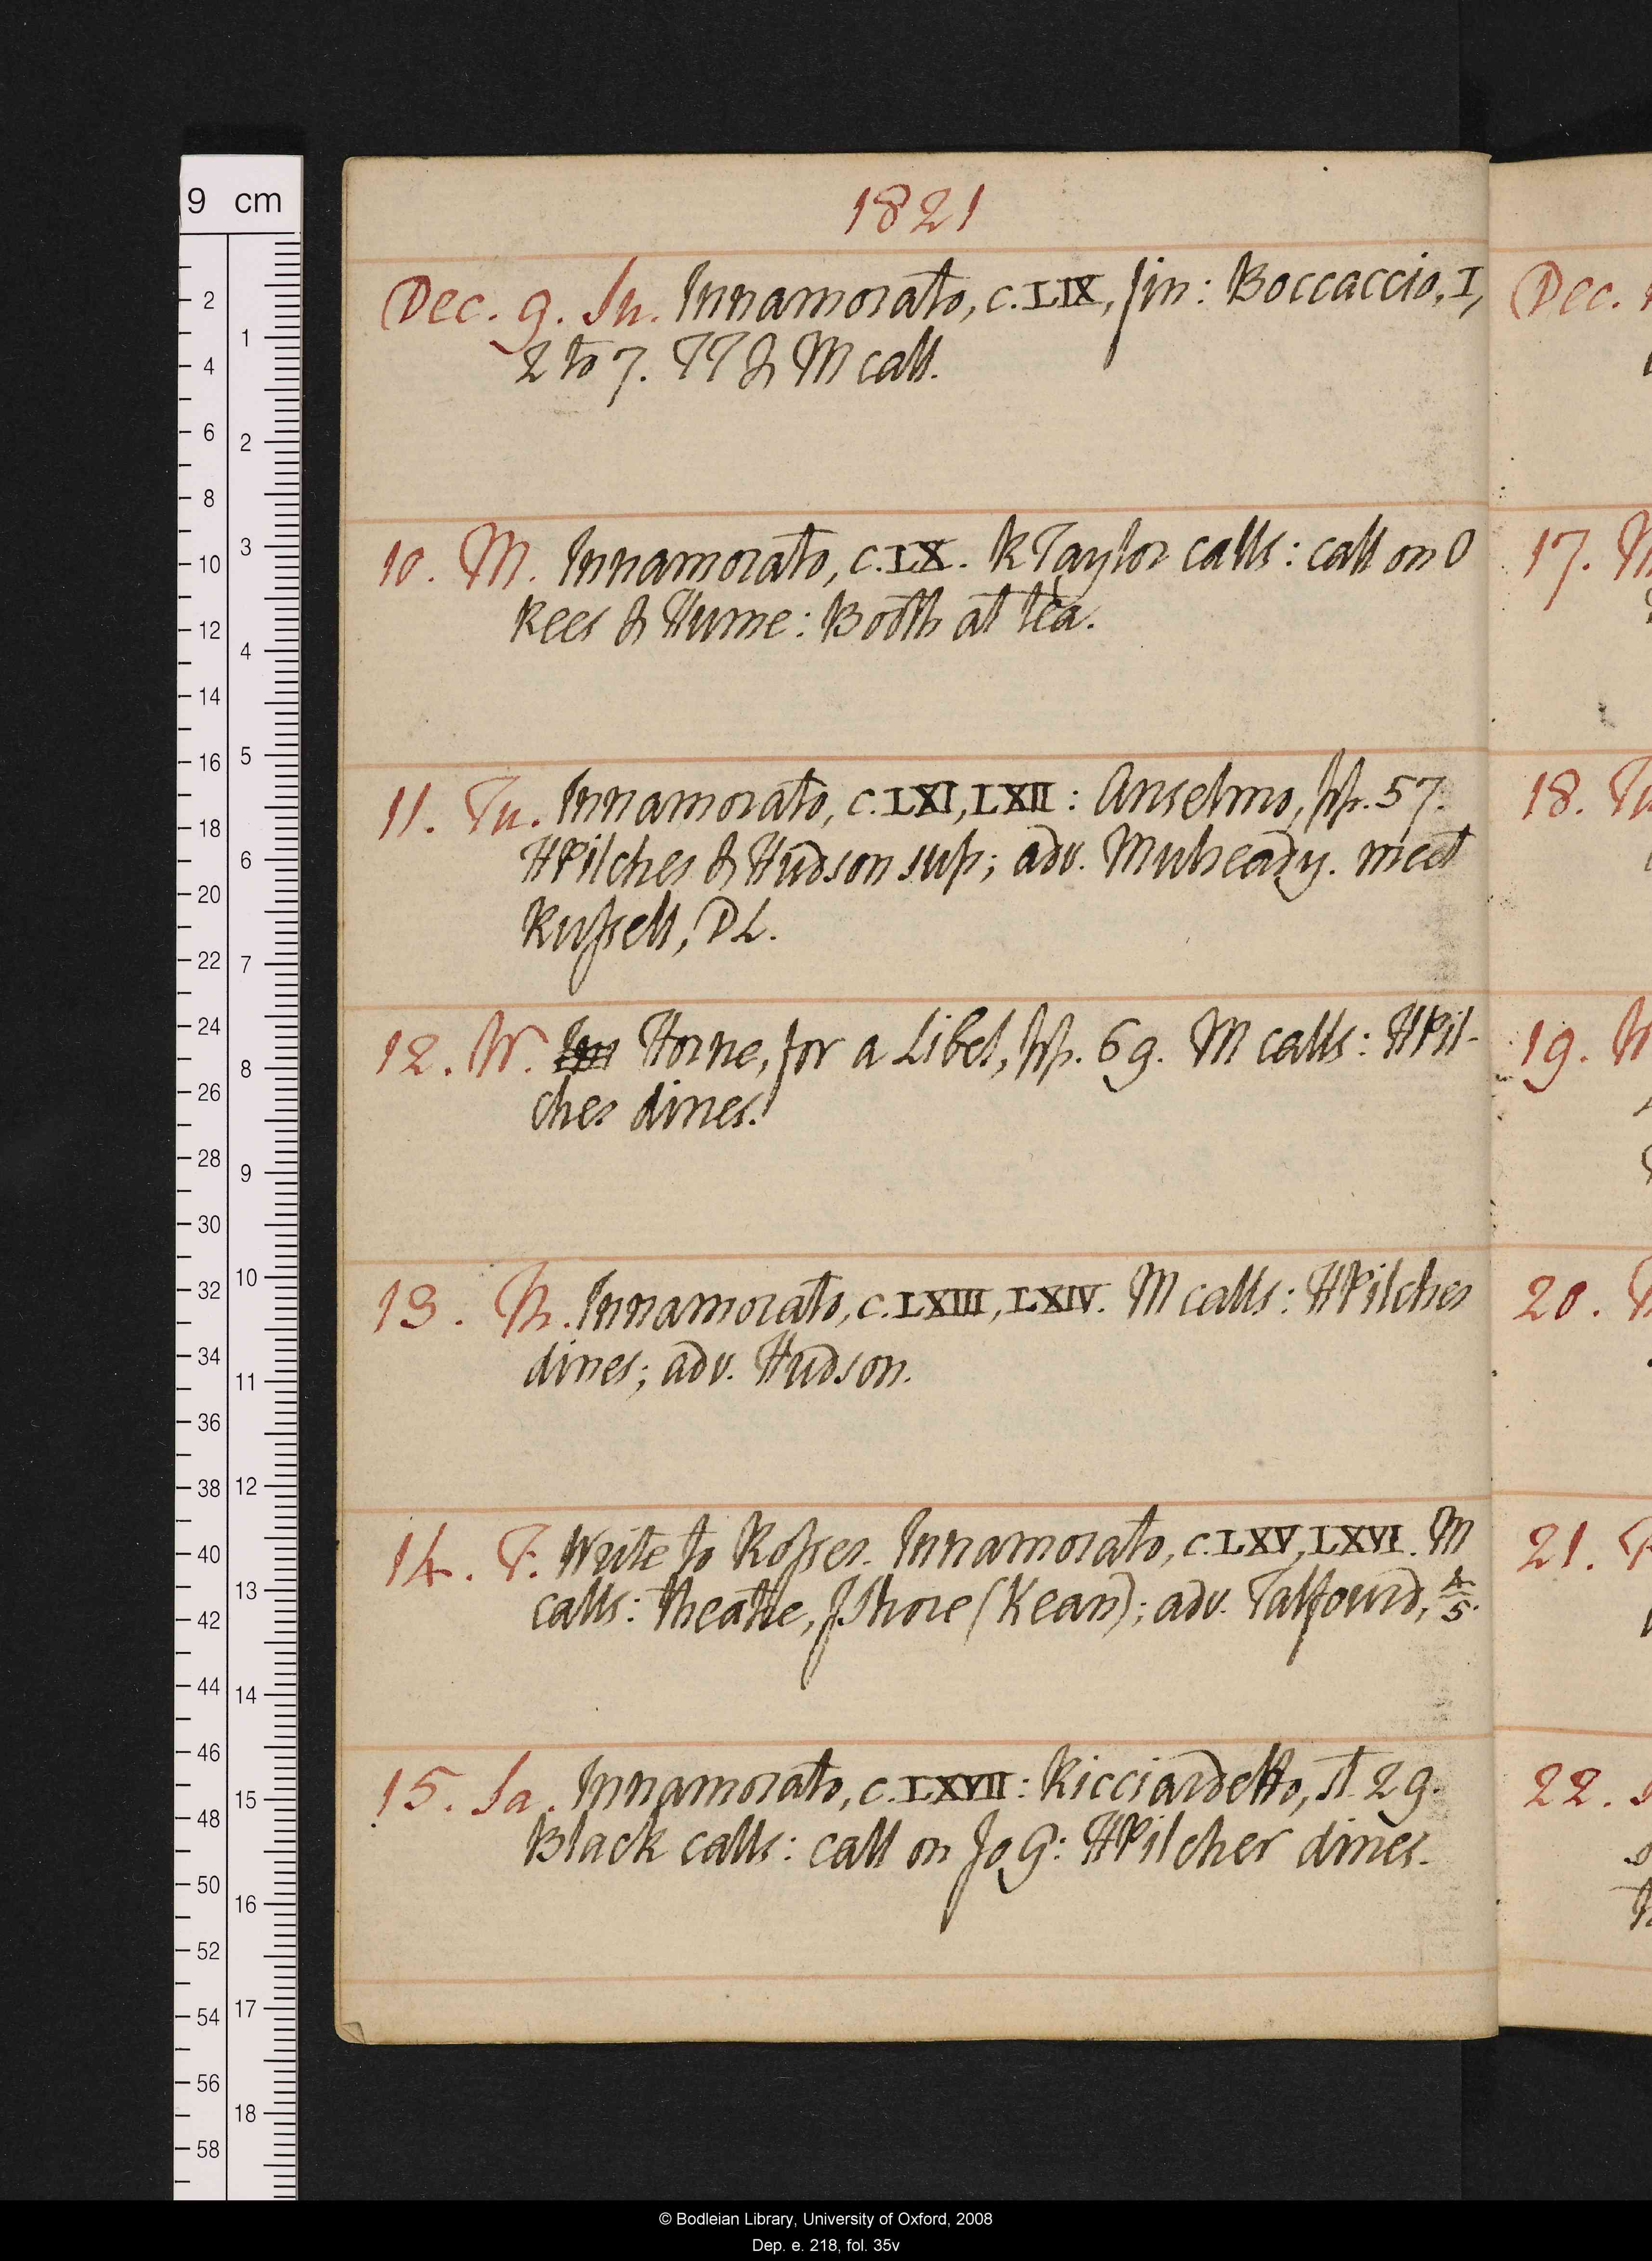 1821
Dec. 9. Su. Innamorato, c. LIX, fin: Boccaccio, I,
2 to 7. TT & M call.
10. M. Innamorato, c. LX. R Taylor calls: call on O
Rees & Hume: Booth at tea.
11. Tu. Innamorato, c. LXI, LXII: Anselmo, pp. 57.
HPilcher & Hudson sup; adv. Mulready. meet
Russell, DL.
12. W. Horne, for a Libel, pp. 69. M calls: HPil-
cher dines.
13. Th. Innamorato, c. LXIII, LXIV. M calls: HPilcher
dines; adv. Hudson.
14. F. Write to Rosser. Innamorato, c. LXV, LXVI. M
calls: theatre, J Shore (Kean); adv. Talfourd, 4/5.
15. Sa. Innamorato, c. LXVII: Ricciardetto, st. 29.
Black calls: call on Jo G: HPilcher dines.
Dec.
17. M
18. Tu
19. W
20. T
21. F
22. S
9 cm
2
4
6
8
10
12
14
16
18
20
22
24
26
28
30
32
34
36
38
40
42
44
46
48
50
52
54
56
58
1
2
3
4
5
6
7
8
9
10
11
12
13
14
15
16
17
18
© Bodleian Library, University of Oxford, 2008
Dep. e. 218, fol. 35v